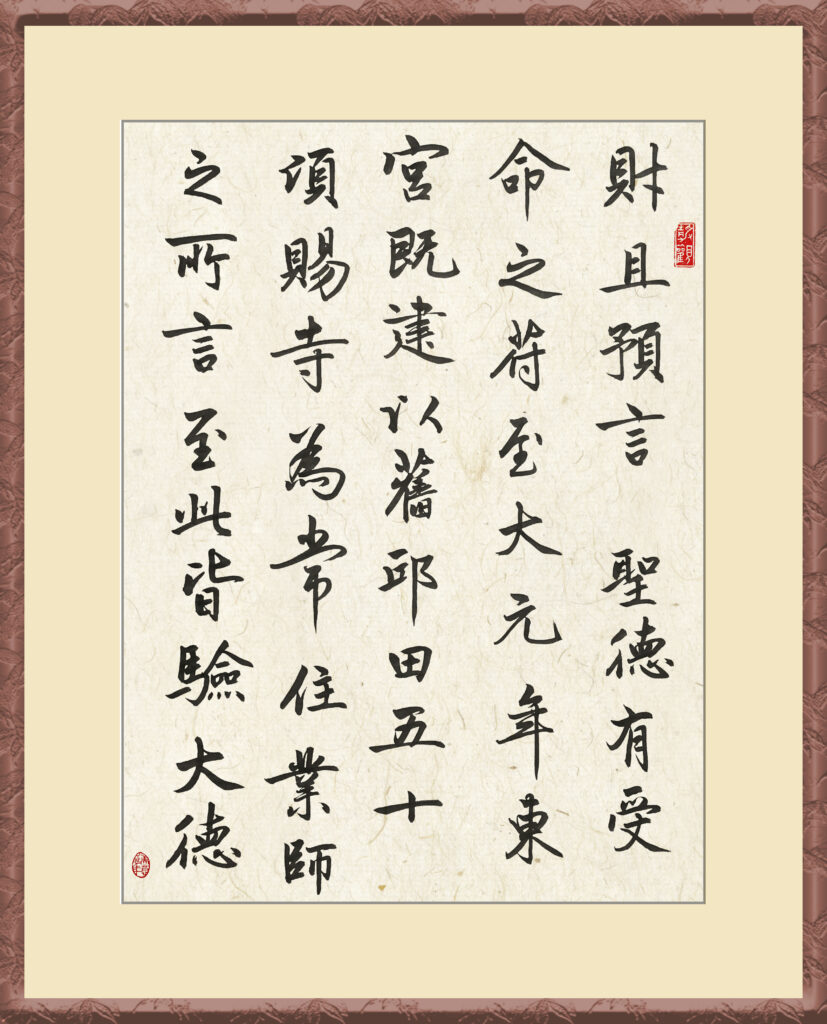 財且預言 聖德有受
命之符至大元年東
宮既建以舊邸田五十
頃賜寺為常住業師
之所言至此皆驗大德